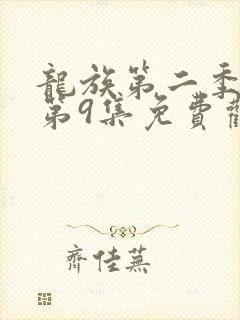 龍族第二季
第9集免費
齊佳蕪